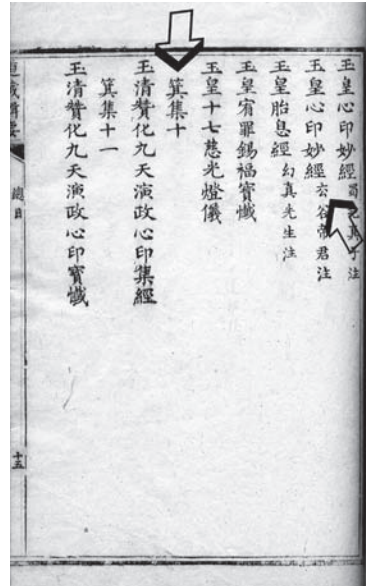 玉皇心印妙經 真子注
玉皇心印妙經 帝君注
玉皇胎息經 幻真先生注
玉皇宥罪錫福寶懺
玉皇十七慈光燈儀
箕集十
玉清贊化九天演政心印集經
箕集十一
玉清贊化九天演政心印寶懺
道藏輯要
總目
十五